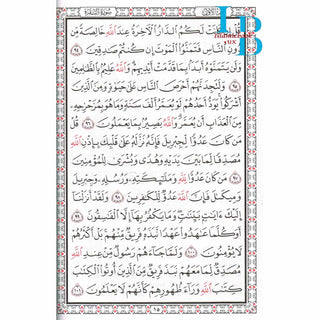 سورة البقرة
قُلْ إِن كَانَتْ لَكُمُ الدَّارُ الْآخِرَةُ عِندَ اللَّهِ خَالِصَةً مِّن
دُونِ النَّاسِ فَتَمَنَّوُا الْمَوْتَ إِن كُنتُمْ صَادِقِينَ ٩٤
وَلَن يَتَمَنَّوْهُ أَبَدًا بِمَا قَدَّمَتْ أَيْدِيهِمْ وَاللَّهُ عَلِيمٌ بِالظَّالِمِينَ
٩٥ وَلَتَجِدَنَّهُمْ أَحْرَصَ النَّاسِ عَلَىٰ حَيَاةٍ وَمِنَ الَّذِينَ
أَشْرَكُوا يَوَدُّ أَحَدُهُمْ لَوْ يُعَمَّرُ أَلْفَ سَنَةٍ وَمَا هُوَ بِمُزَحْزِحِهِ
مِنَ الْعَذَابِ أَن يُعَمَّرَ وَاللَّهُ بَصِيرٌ بِمَا يَعْمَلُونَ ٩٦ قُلْ
مَن كَانَ عَدُوًّا لِّجِبْرِيلَ فَإِنَّهُ نَزَّلَهُ عَلَىٰ قَلْبِكَ بِإِذْنِ اللَّهِ
مُصَدِّقًا لِّمَا بَيْنَ يَدَيْهِ وَهُدًى وَبُشْرَىٰ لِلْمُؤْمِنِينَ
٩٧ مَن كَانَ عَدُوًّا لِّلَّهِ وَمَلَائِكَتِهِ وَرُسُلِهِ وَجِبْرِيلَ
وَمِيكَالَ فَإِنَّ اللَّهَ عَدُوٌّ لِّلْكَافِرِينَ ٩٨ وَلَقَدْ أَنزَلْنَا
إِلَيْكَ آيَاتٍ بَيِّنَاتٍ وَمَا يَكْفُرُ بِهَا إِلَّا الْفَاسِقُونَ ٩٩
أَوَكُلَّمَا عَاهَدُوا عَهْدًا نَّبَذَهُ فَرِيقٌ مِّنْهُم بَلْ أَكْثَرُهُمْ
لَا يُؤْمِنُونَ ١٠٠ وَلَمَّا جَاءَهُمْ رَسُولٌ مِّنْ عِندِ اللَّهِ
مُصَدِّقٌ لِّمَا مَعَهُمْ نَبَذَ فَرِيقٌ مِّنَ الَّذِينَ أُوتُوا الْكِتَابَ
كِتَابَ اللَّهِ وَرَاءَ ظُهُورِهِمْ كَأَنَّهُمْ لَا يَعْلَمُونَ ١٠١
١٥